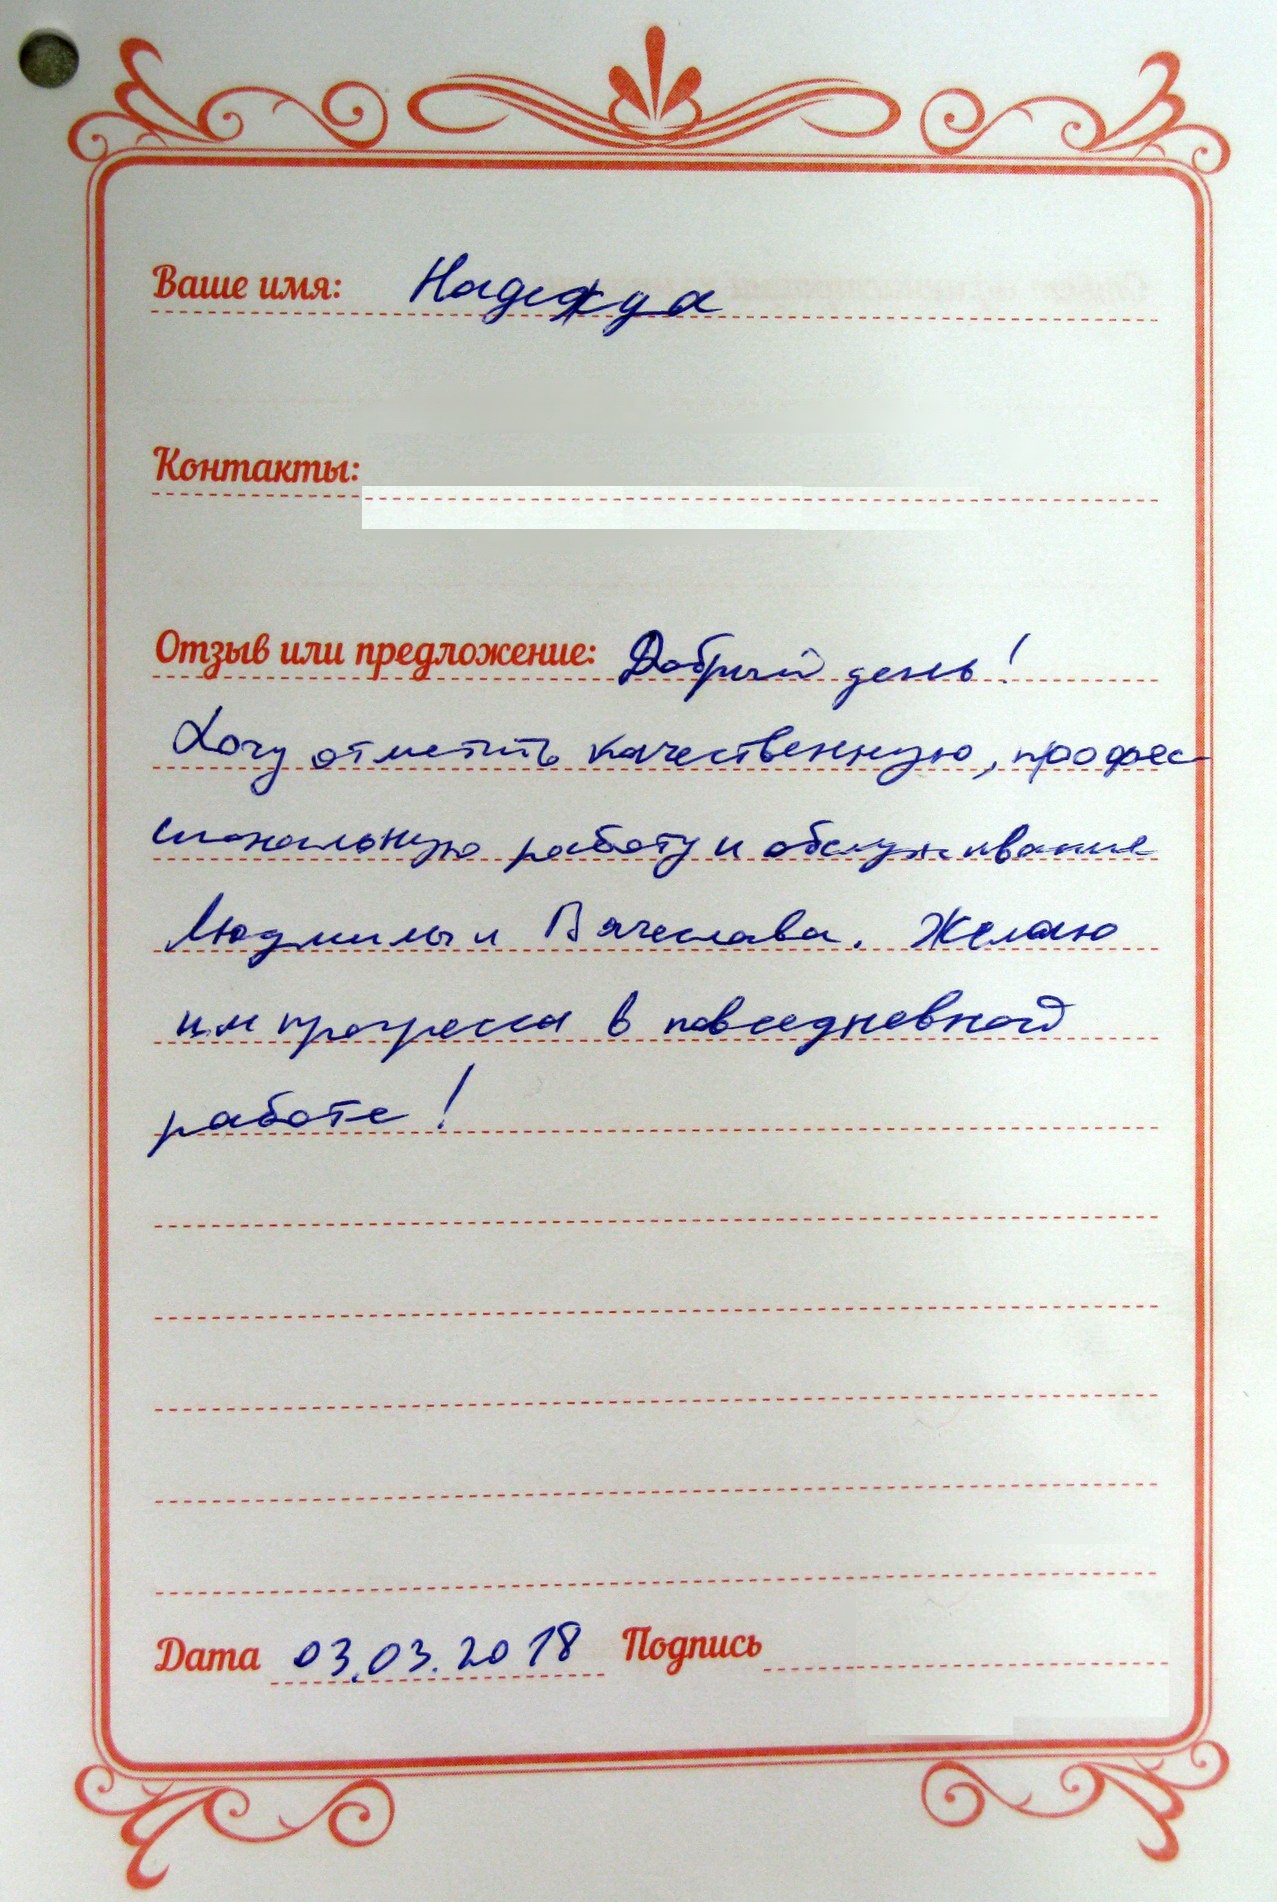 Ваше имя: Надежда
Контакты:
Отзыв или предложение: Добрый день!
Хочу отметить качественную, профес-
сиональную работу и обслуживание
Людмилы и Вячеслава. Желаю
им прогресса в повседневной
работе!
Дата 03.03.2018 Подпись